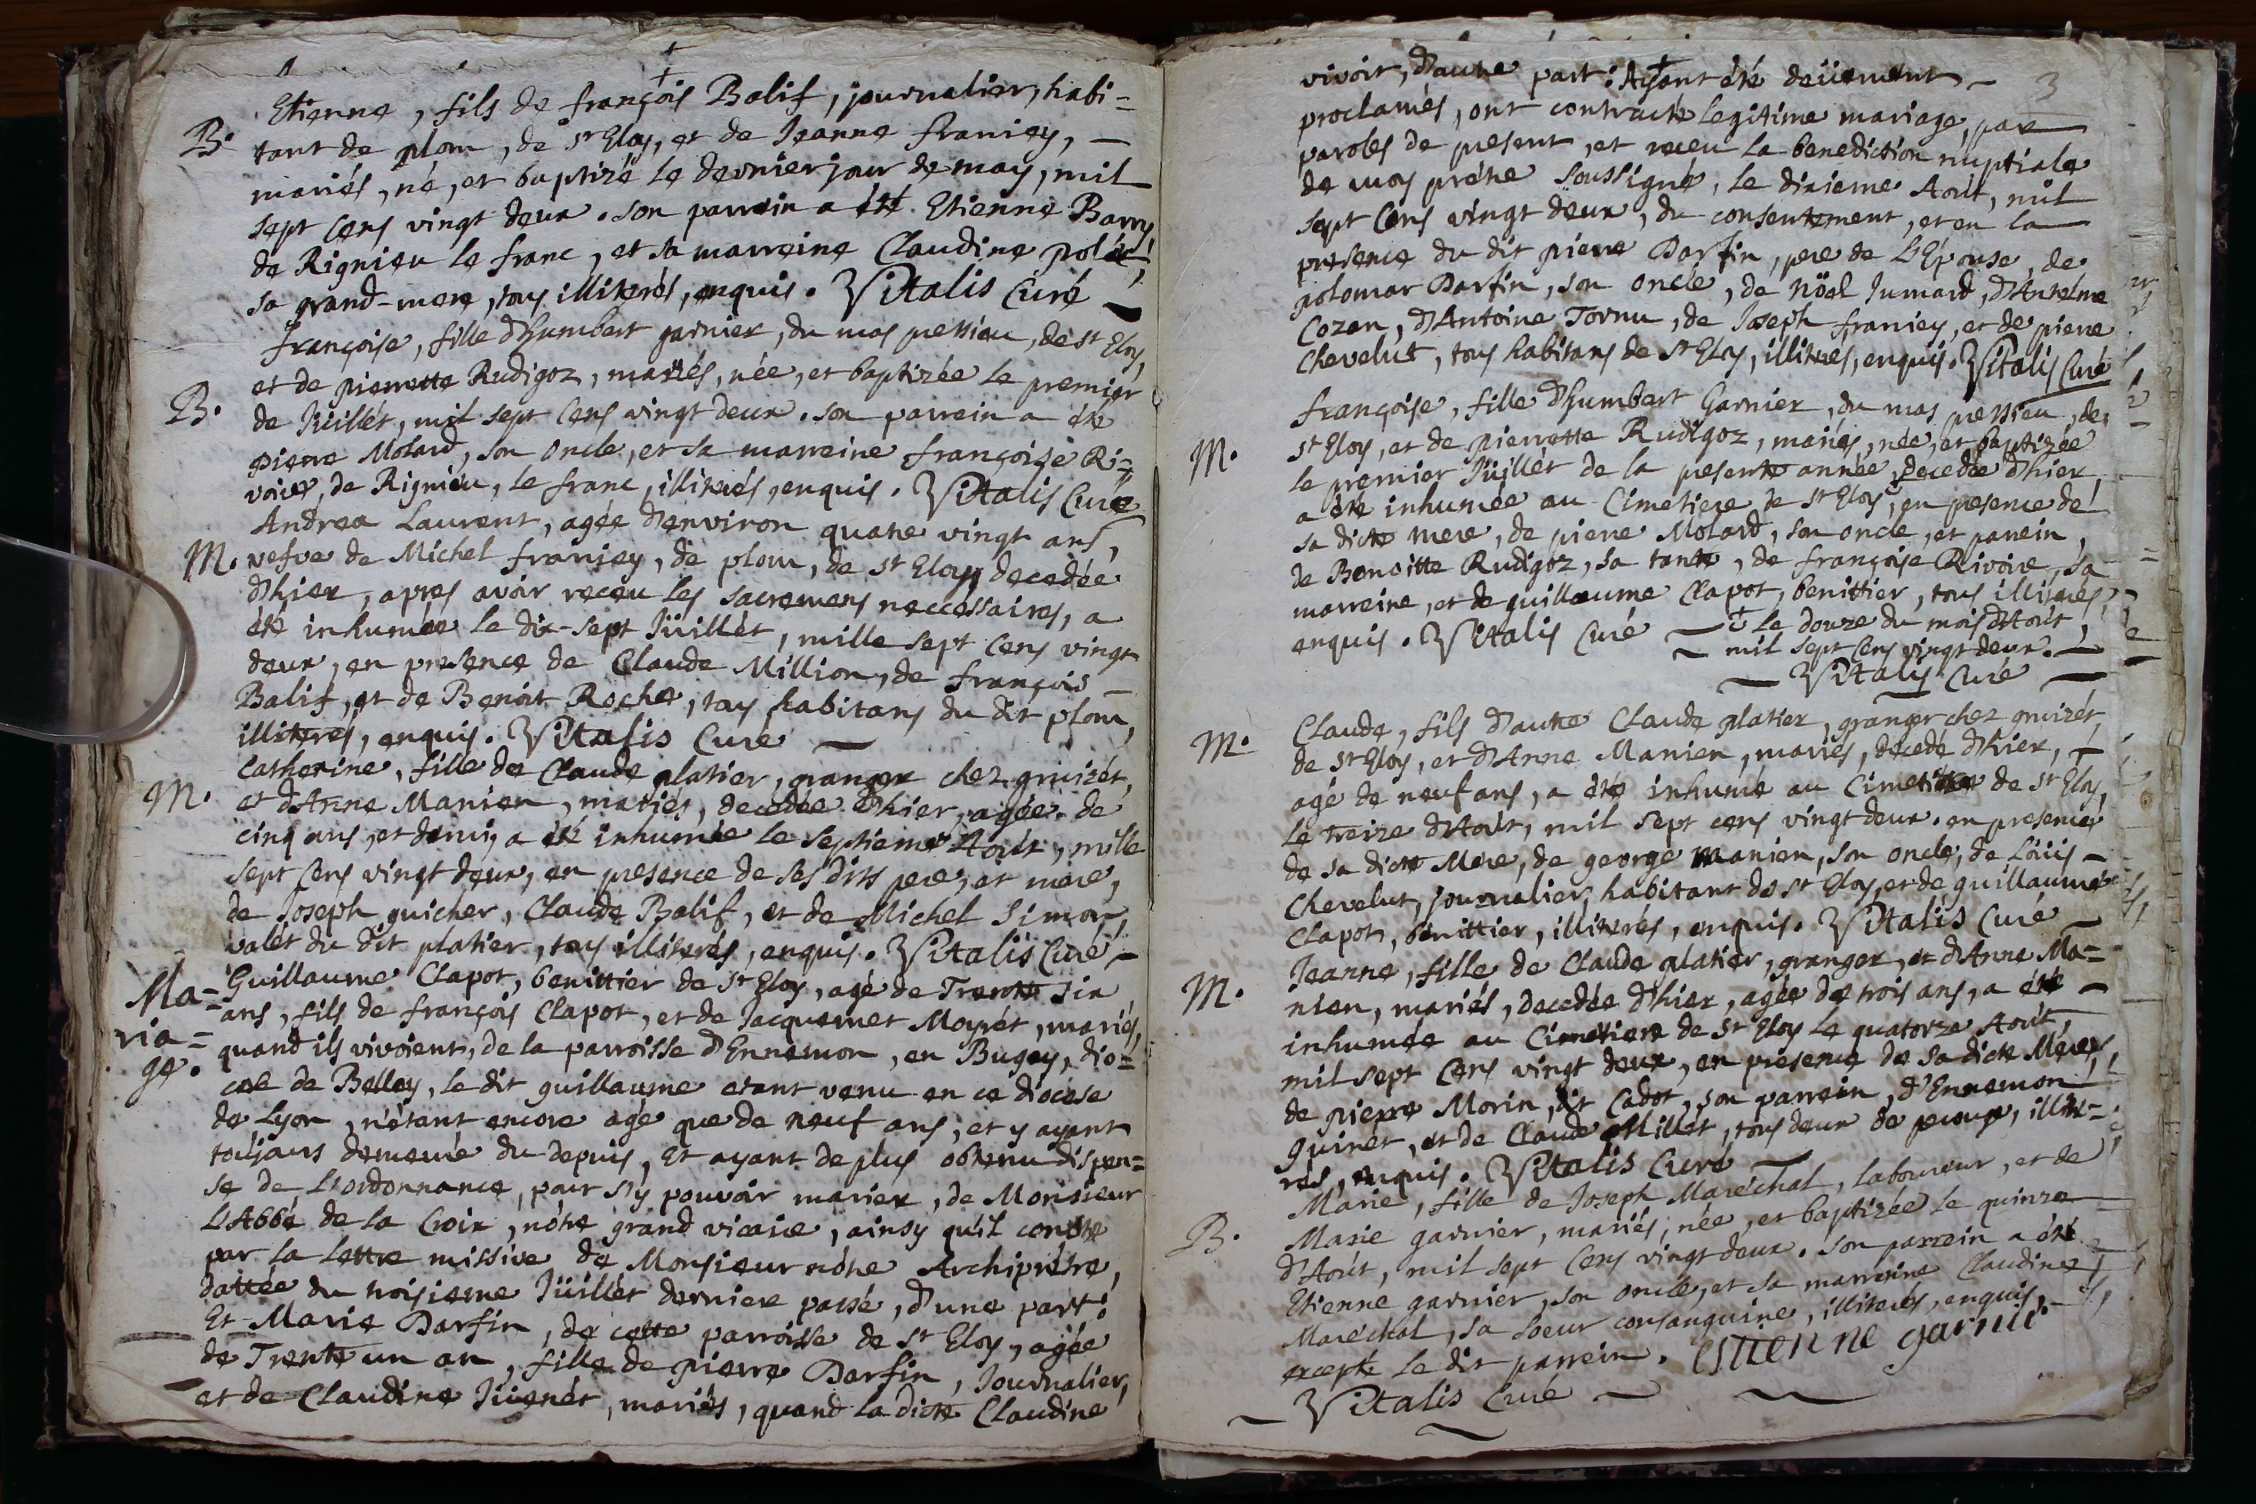 Etienne, fils de françois Balif, journalier, habi=
B. tant de plom, de st Eloy, et de Jeanne franjey,
mariés, né, et baptizé le dernier jour de may, mil
sept cens vingt deux. son parrein a été Etienne Barry,
de Rignieu le franc, et sa marreine Claudine polét,
sa grand-mere, tous illiterés, enquis. Vitalis Curé
françoise, fille d'humbert garnier, du mas pessieu, de st Eloy,
et de pierrette Rudigoz, mariés, née, et baptizée le premier
B. de Jüillét, mil sept cens vingt deux. son parrein a été
pierre Molard, son oncle, et sa marreine françoise Ri=
voire, de Rigniéu, le franc, illiterés, enquis. Vitalis Curé
Andrea Laurent, agée d'environ quatre vingt ans,
M. vefve de Michel franjey, de plom, de st Eloy, decedée
d'hier, apres avoir receu les sacremens neccessaires, a
été inhumée le dix-sept Jüillét, mille sept cens vingt
deux, en presence de Claude Million, de françois
Balif, et de Benoit Roche, tous habitans du dit plom,
illiterés, enquis. Vitalis Curé
Catherine, fille de Claude platier, granger chez gruizét,
M. et d'Anne Manien, mariés, decedée d'hier, agée de
cinq ans, et demi, a été inhumée le septieme Août, mille
sept cens vingt deux, en presence de ses dits pere, et mere,
de Joseph guicher, Claude Balif, et de Michel Simon,
valét du dit platier, tous illiterés, enquis. Vitalis Curé
Ma= Guillaume Clapot, benittier de st Eloy, agé de Trente six
ria= ans, fils de françois Clapot, et de Jacquemet Moyrét, mariés,
ge. quand ils vivoient, de la parroisse d'Ennemon, en Bugey, dio=
cese de Belley, le dit guillaume etant venu en ce diocese
de Lyon, n'étant encore agé que de neuf ans, et y ayant
toûjours demeuré du depuis, Et ayant de plus obtenu dispen=
se de L'ordonnance, pour s'y pouvoir marier, de Monsieur
L'Abbé de la Croix, nôtre grand vicaire, ainsy qu'il conste
par la lettre missive de Monsieur nôtre Archiprêtre,
dattée du troisieme Jüillét derniere passé, d'une part:
Et Marie Darfin, de cette parroisse de st Eloy, agée
de Trente un an, fille de pierre Darfin, Journalier,
et de Claudine Jüenét, mariés, quand la dicte Claudine
3
vivoit, d'autre part: Ayant été deüement
proclamés, ont contracté legitime mariage, par
paroles de present, et receu la benediction nuptiale
de moy prétre soussigné, le dixieme Août, mil
sept cens vingt deux, du consentement, et en la
presence du dit pierre Darfin, pere de L'Épouse, de
polomar Darfin, son oncle, de nöel Jumard, d'Anselme
Cozan, d'Antoine Tornu, de Joseph franjey, et de pierre
Chevelut, tous habitans de st Eloy, illiterés, enquis. Vitalis Curé
françoise, fille d'humbert Garnier, du mas pessieu, de
M. st Eloy, et de pierrette Rudigoz, mariés, née, et baptizée
le premier Jüillét de la presente année, decedée d'hier,
a été inhumée au Cimetiere de st Eloy, en presence de
sa dicte mere, de pierre Molard, son oncle, et parrein,
de Benoitte Rudigoz, sa tante, de françoise Rivoire, sa
marreine, et de guillaume Clapot, benittier, tous illiterés,
enquis. Vitalis Curé + le douze du mois d'Août,
mil sept cens vingt deux.
Vitalis Curé
Claude, fils d'autre Claude platier, granger chez gruizét,
M. de st Eloy, et d'Anne Manien, mariés, decedé d'hier,
agé de neuf ans, a été inhumé au Cimetiere de st Eloy,
le treize d'Août, mil sept cens vingt deux. en presence
de sa dicte Mere, de george Manien, son oncle, de Loüis
Chevelut, journalier, habitant de st Eloy, et de guillaume
Clapot, benittier, illiterés, enquis. Vitalis Curé
Jeanne, fille de Claude platier, granger, et d'Anne Ma=
M. nien, mariés, decedée d'hier, agée de trois ans, a été
inhumée au Cimetiere de st Eloy le quatorze Août,
mil sept cens vingt deux, en presence de sa dicte Mere,
de pierre Morin, dit Cadot, son parrein, d'Ennemon
guinét, et de Claude Millét, tous deux de perouge, illite=
rés, enquis. Vitalis Curé
Marie, fille de Joseph Maréchal, laboureur, et de
B. Marie garnier, mariés, née, et baptizée le quinze
d'Août, mil sept cens vingt deux. son parrein a été
Etienne garnier, son oncle, et sa marreine Claudine
Maréchal, sa soeur consanguine, illiterés, enquis,
excepté le dit parrein. estienne garnié
Vitalis Curé